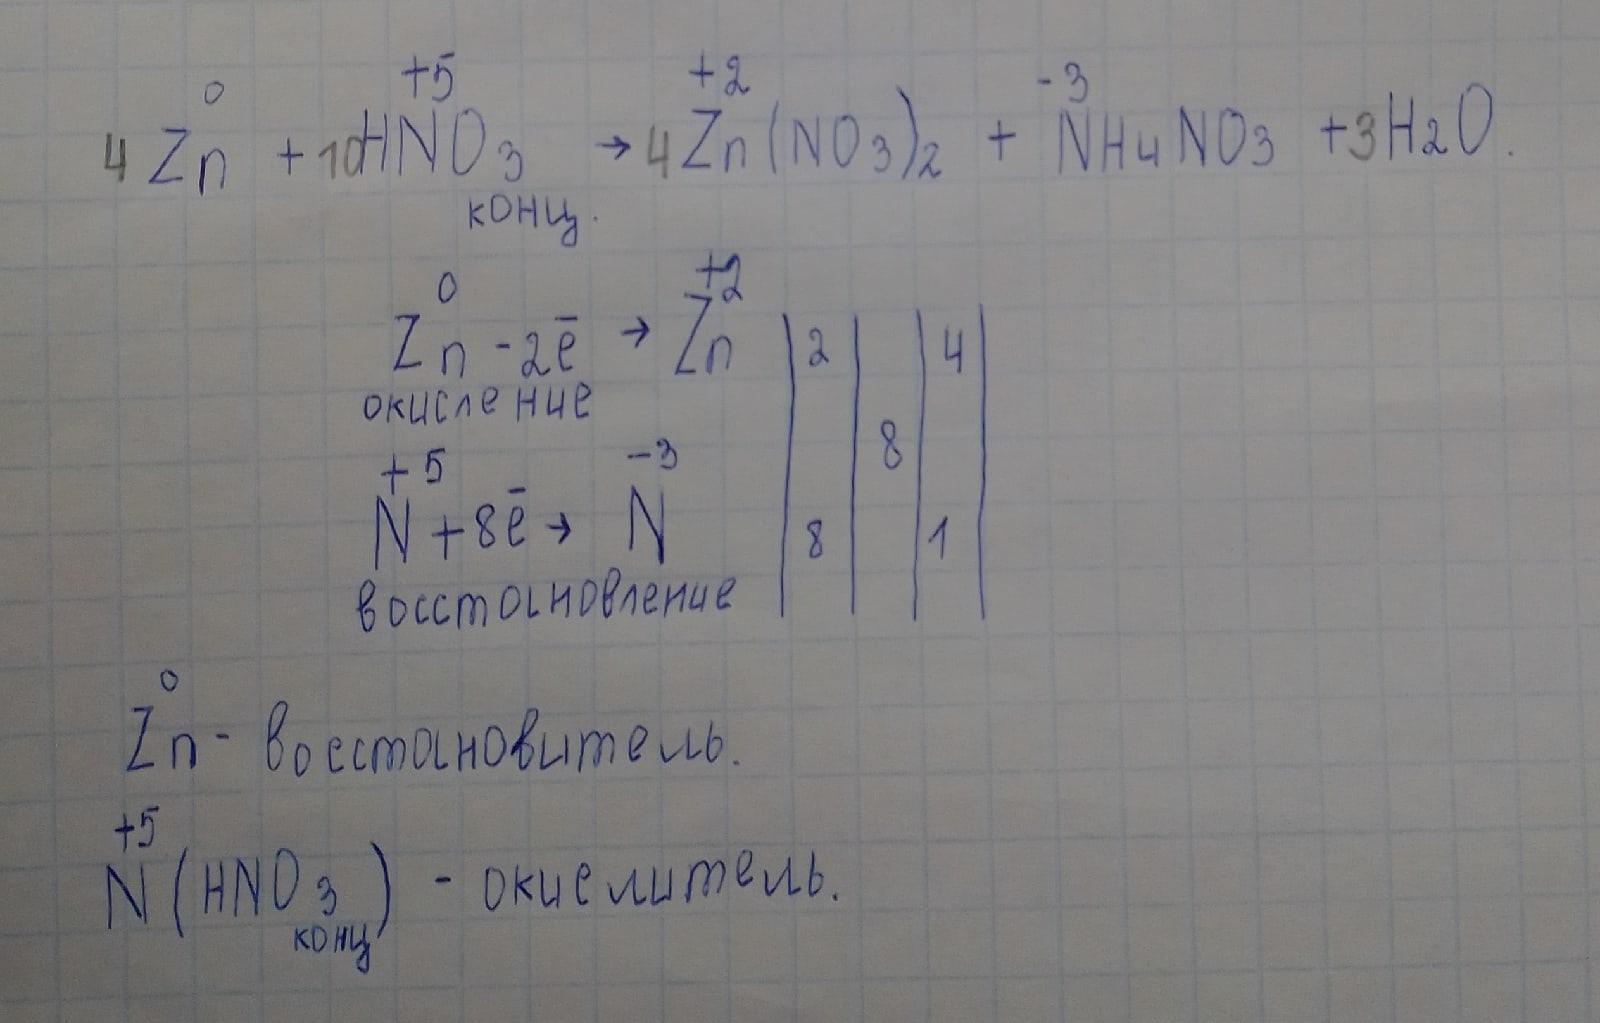 0 +5 +2 -3
4 Zn + 10HNO3 → 4 Zn(NO3)2 + NH4NO3 + 3H2O.
конц.
0 +2
Zn - 2ē → Zn 2 4
окисление
8
+5 -3
N + 8ē → N 8 1
восстановление
0
Zn - восстановитель.
+5
N (HNO3) - окислитель.
конц